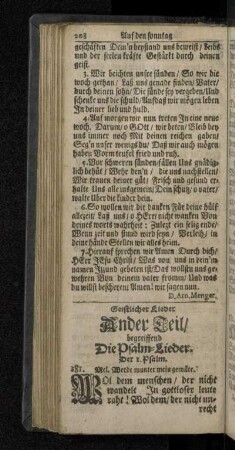 208 Auf den sonntag
geschäften Dein'n beystand uns beweist / Leibs
und der seelen kräfte Gestärkt durch deinen
geist.
3. Wir beichten unsre sünden / So wir die
woch gethan / Laß uns genade finden / Vater/
durch deinen sohn / Die sünde sey vergeben / Und
schenke uns die schuld / Aufdaß wir mögen leben
In deiner lieb und huld.
4. Auf morgen wir nun treten In eine neue
woch. Darum / o GOtt / wir beten / Bleib bey
uns immer noch Mit deinen reichen gaben /
Seg'n unser wenigs du / Daß wir auch mögen
haben Vorm teufel fried und ruh.
5. Vor schweren sünden-fällen Uns gnädig-
lich behüt / Wehr den'n / die uns nachstellen /
Wir trauen deiner güt / Frisch und gesund er-
halte Uns alle insgemein / Dein schutz / o vater/
walte Über die kinder dein.
6. So wollen wir dir danken Für deine hülf
allezeit / Laß uns / o HErr nicht wanken Von
deines worts wahrheit: Zuletzt ein selig ende/
Wenn zeit und stund wird seyn / Verleih / in
deine hände Stellen wir alles heim.
7. Hierauf sprechen wir Amen Durch dich/
HErr JEsu Christ / Was von uns in dein'm
namen Itzund gebeten ist / Das wollst uns ge-
währen Von deinem vater fromm / Und was
du willst bescheeren Amen! wir sagen nun.
D. Arn. Menger.
Geistlicher Lieder
Ander Teil/
begreiffend
Die Psalm-Lieder.
Der 1. Psalm.
281. Mel. Werde munter mein gemüte.
WOl dem menschen / der nicht
wandelt In gottloser leute
raht! Wol dem / der nicht un-
recht